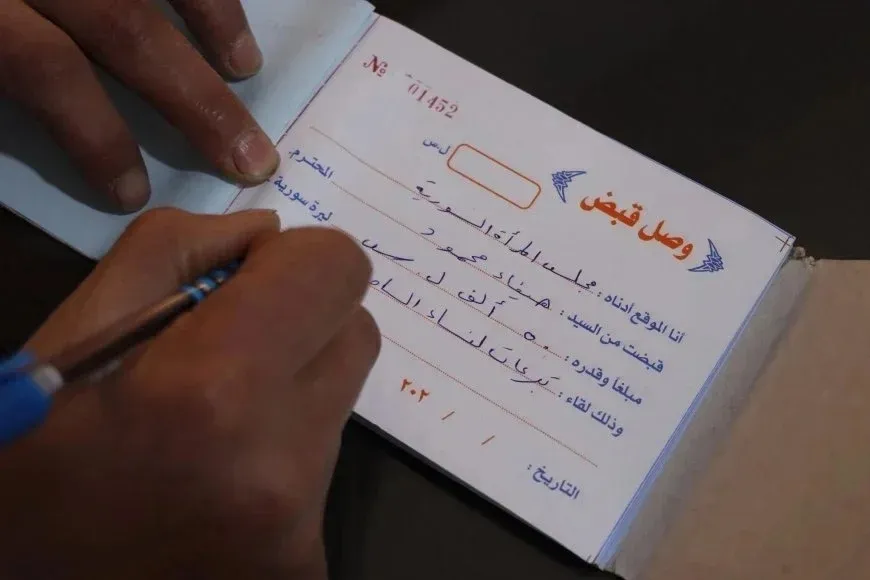 № 01452
وصل قبض
ل.س
أنا الموقع أدناه : مجلس المرأة السورية
قبضت من السيد : هيفاء محمود المحترم.
مبلغاً وقدره : ٥٠ ألف ل.س ليرة سورية
وذلك لقاء : تبرعات لنساء
التاريخ : / / ٢٠٢